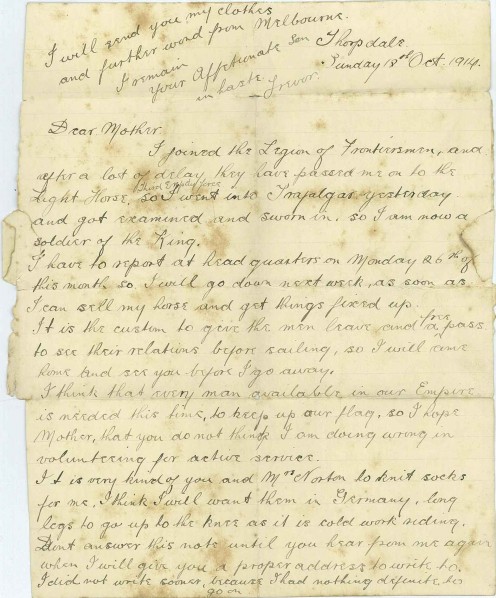 I will send you my clothes
and further word from Melbourne.
I remain
your Affetunate Son
in haste Trevor.
Thorpdale
Sunday 18th Oct. 1914.
Dear Mother
I joined the Legion of Frontiersmen, and
after a lot of delay they have passed me on to the
Light Horse, so I went into Trafalgar yesterday
and got examined and sworn in. so I am now a
soldier of the King.
I have to report at head quarters on Monday 26th of
this month so I will go down next week, as soon as
I can sell my horse and get things fixed up.
free
It is the custom to give the men leave and a pass
to see their relations before sailing, so I will come
home and see you before I go away.
I think that every man available in our Empire
is needed this time, to keep up our flag, so I hope
Mother, that you do not think I am doing wrong in
volunteering for active service.
It is very kind of you and Mrs Norton to knit socks
for me, I think I will want them in Germany, long
legs to go up to the knee as it is cold work riding.
Dont answer this note until you hear from me again
when I will give you a proper address to write to.
I did not write sooner, because I had nothing definite to
go on